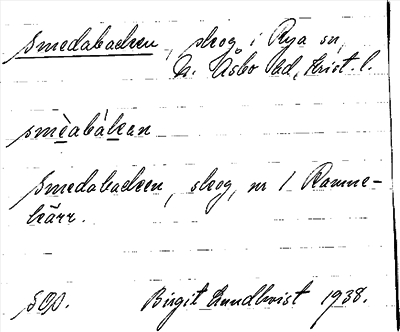 Smedabacken, skog i Rya sn,
N. Åsbo hd, Krist. l.
smèabàkean
Smedabacken, skog, nr 1 Ramne-
kärr.
Birgit Lundkvist 1938.